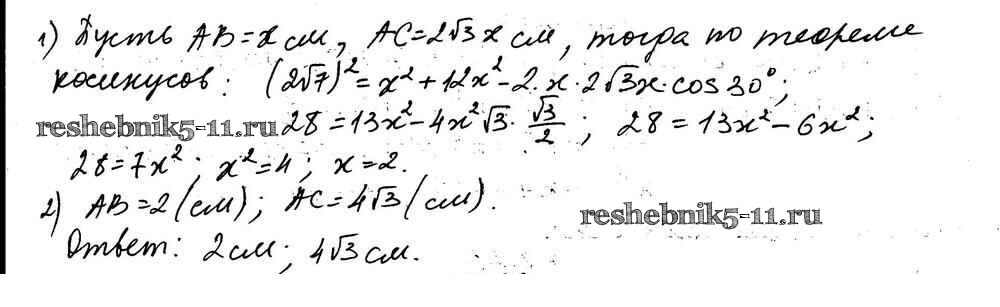 1) Пусть AB=x см, AC=2√3x см, тогда по теореме
косинусов: (2√7)²=x²+12x²-2·x·2√3x·cos30°;
reshebnik5-11.ru 28=13x²-4x²√3·√3/2; 28=13x²-6x²;
28=7x²; x²=4; x=2.
2) AB=2(см); AC=4√3(см).
reshebnik5-11.ru
Ответ: 2см; 4√3см.